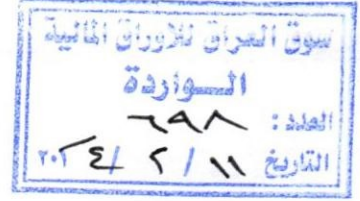 سوق العراق للاوراق المالية
الـــواردة
العدد : ٦٩٨
التاريخ ١١ / ٢ / ٢٠٢٤